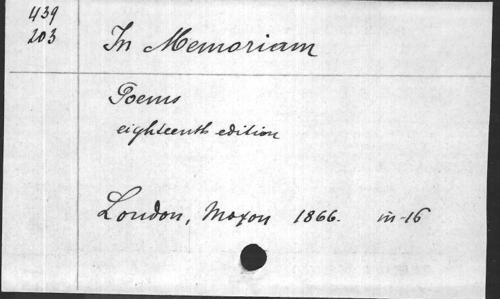 439
203
In Memoriam
Poems
eighteenth edition
London, Moxon 1866. in-16